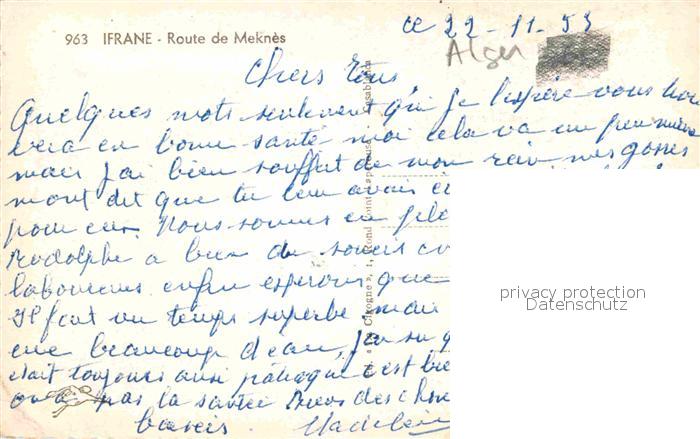 963 IFRANE - Route de Meknès
ce 22-11-53
Alger
Chers Tous
Quelques mots seulement qui je l'espère vous trou
vera en bonne santé moi cela va un peu mieux
mais j'ai bien souffert de mon rein mes gosses
mont dit que tu leur avais
pour eux. Nous sommes en
Rodolphe a bien de soucis
labourons enfin espérons que
Il fait un temps superbe mais
eue beaucoup d'eau, j'ai su
était toujours aussi c'est
pas la santée Bien des chose
baisers Madeleine
privacy protection
Datenschutz